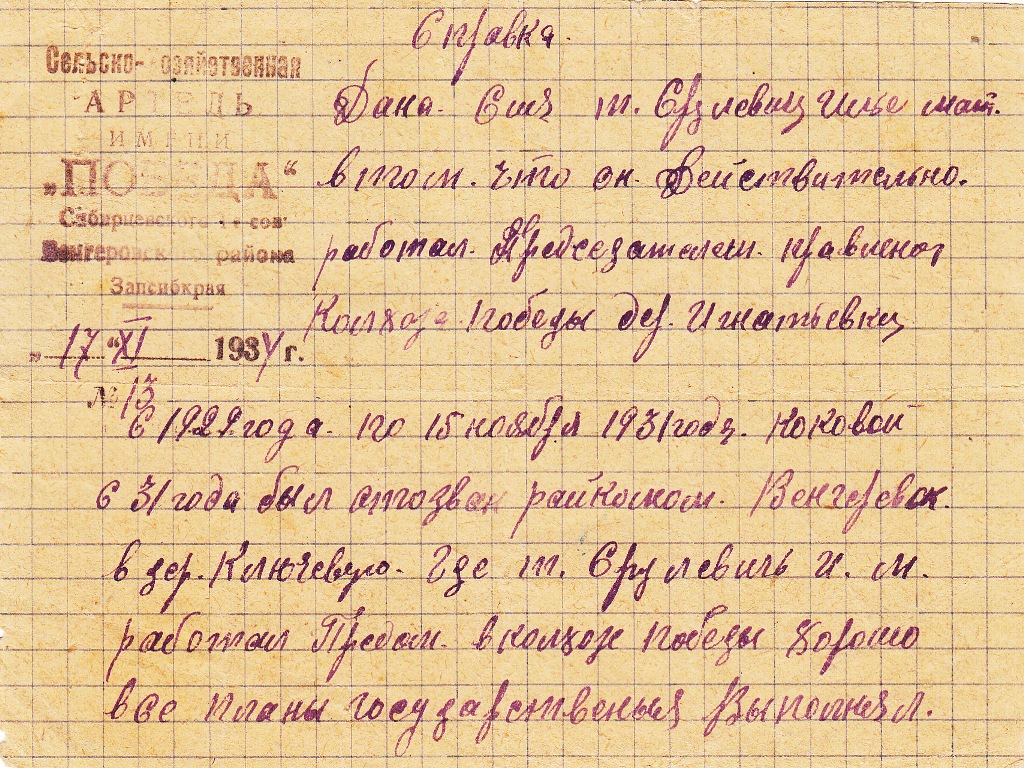 Справка.
Сельско-хозяйственная
АРТЕЛЬ
ИМЕНИ
„ПОБЕДА“
с-сов
Венгеровского района
Запсибкрая
„17“ XI 1934 г.
№ 13
Дана. Сия т. Ерулевич Илье мат.
в том. что он. Действительно.
работал. Председателем. правления
Колхоза победы дер. Игнатьевки
С 1929 года. по 15 ноября 1931 года. коковой
с 31 года был отозван райкомом. Венгеровск.
в дер. Ключевую. где т. Ерулевичь И. М.
работал Предом. в колхозе победы хорошо
все планы государственыя Выполнял.